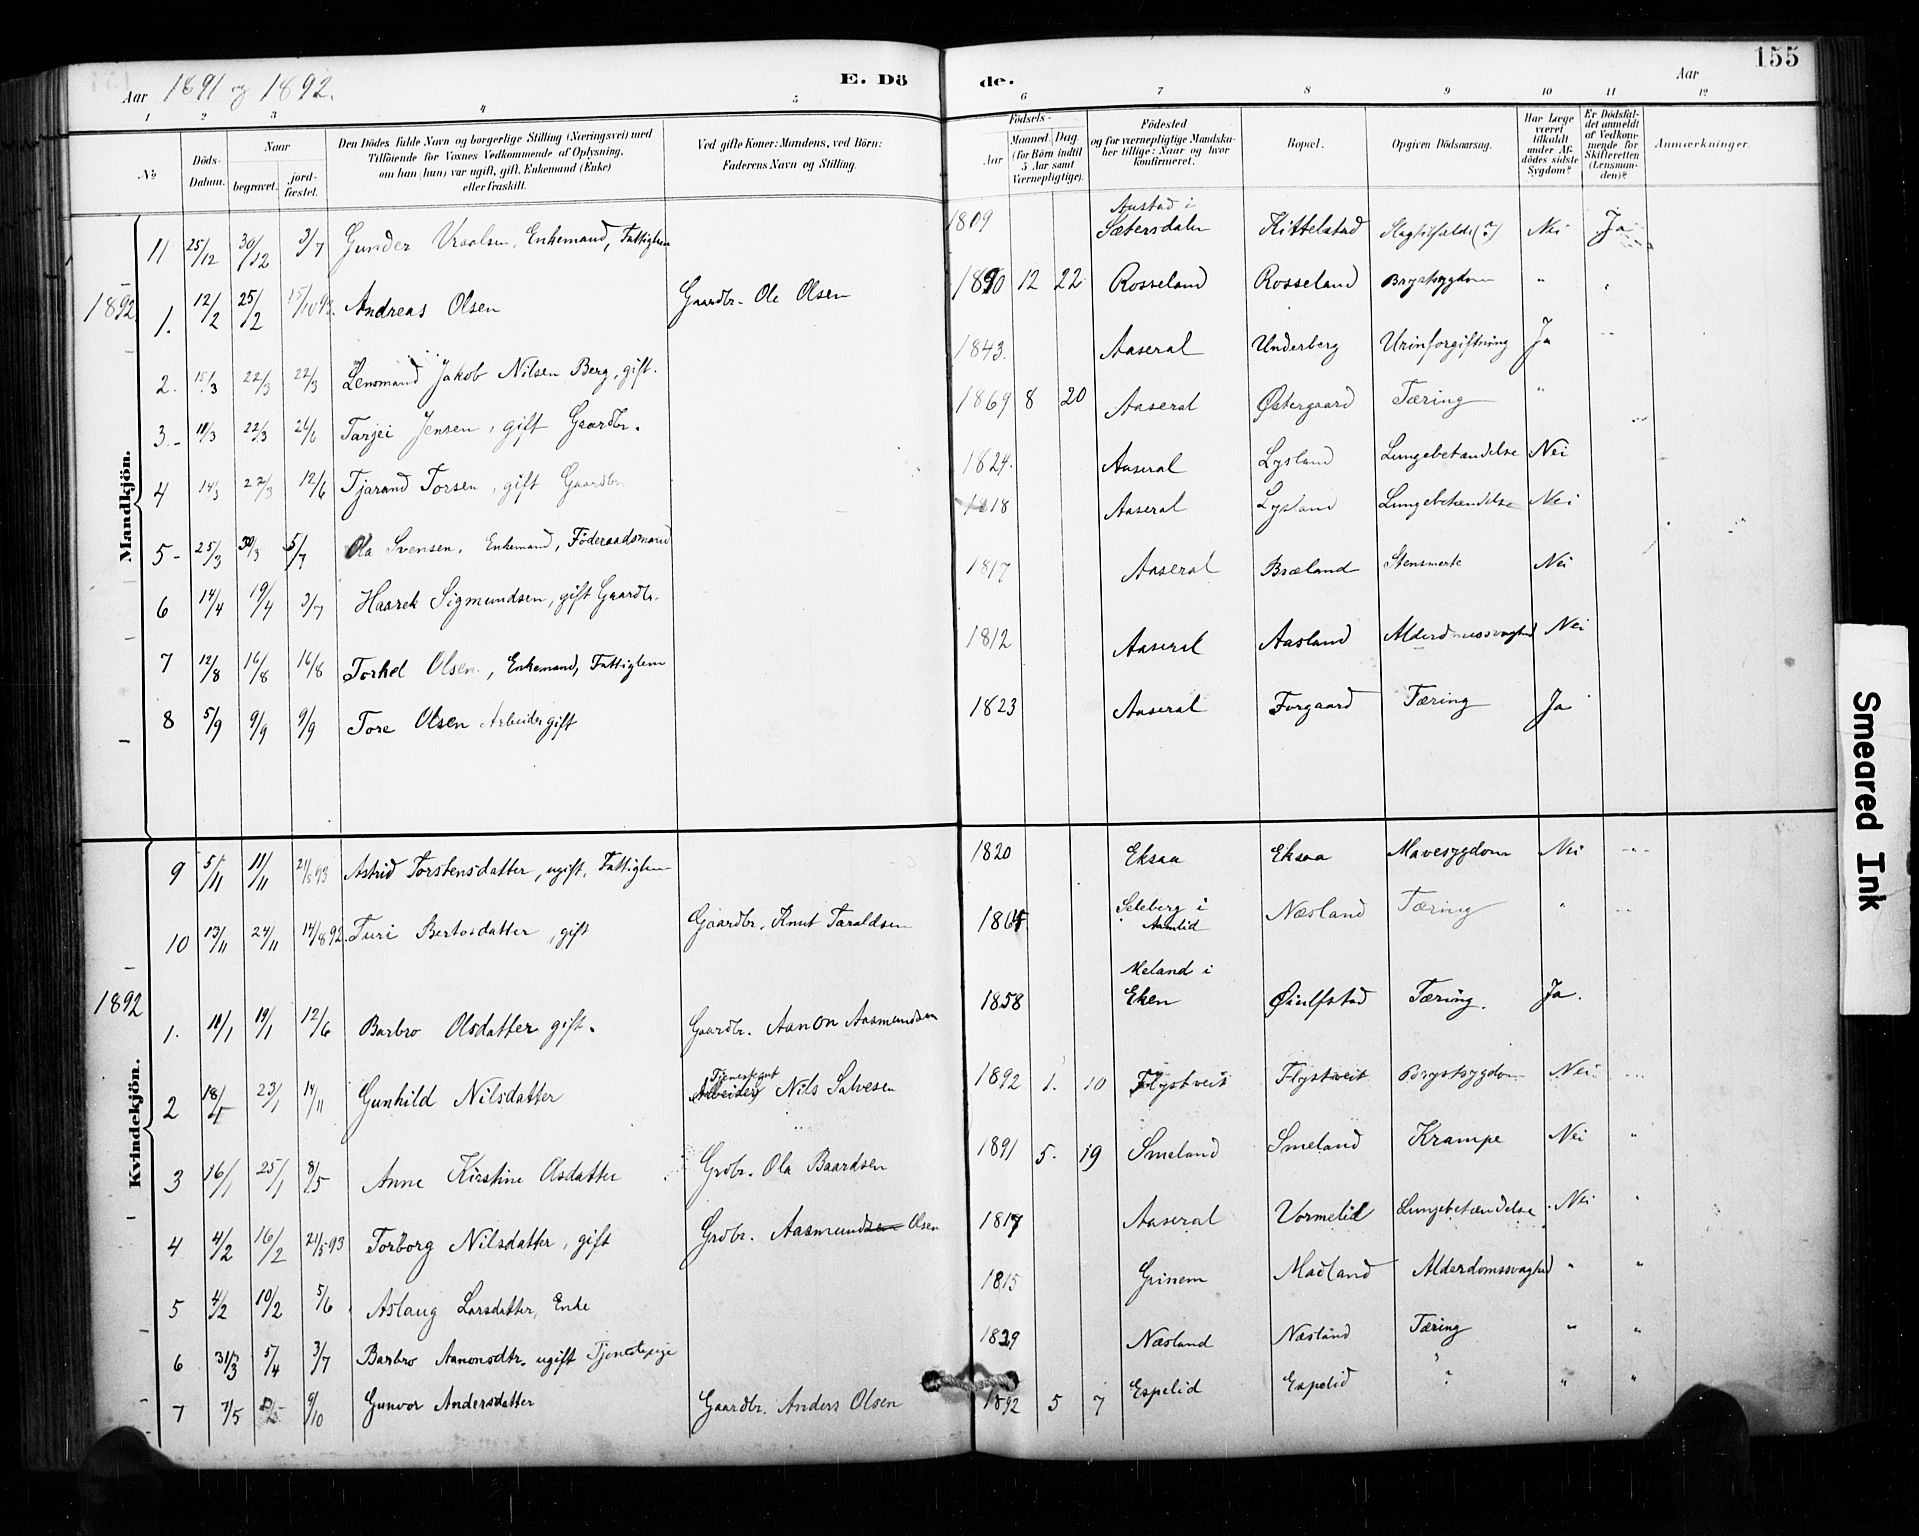 155
Aar 1891 og 1892. E. Dö de. Aar
1 2 3 4 5 6 7 8 9 10 11 12
No Döds-Datum. Naar begravet. jord-fæstet. Den Dödes fulde Navn og borgerlige Stilling (Næringsvei) med Tilföiende for Voxnes Vedkommende af Oplysning, om han (hun) var ugift, gift, Enkemand (Enke) eller fraskilt. Ved gifte Koner: Mandens, ved Börn: Faderens Navn og Stilling. Födsels- Aar Maaned Dag (for Börn indtil 5 Aar samt Værnepligtige). Födested og for værnepligtige Mandskaber tillige: Naar og hvor konfirmeret. Bopæl. Opgiven Dödsaarsag. Har Læge været tilkaldt under Afdödes sidste Sygdom? Er Dödsfaldet anmeldt af Vedkommende for Skifteretten (Lensmanden)? Anmærkninger.
Mandkjön.
11 25/12 30/12 3/7 Gunder Vraalsen, Enkemand, Fattiglem 1809 Austad i Sætersdalen Kittelstad Slagtilfælde (?) Nei Ja
1892. 1. 12/2 25/2 15/10 93. Andreas Olsen Gaardbr. Ole Olsen 1890 12 22 Rosseland Rosseland Brystsygdom "
2. 15/3 22/3 22/3 Lensmand Jakob Nilsen Berg, gift. 1843. Aaseral Underberg Urinforgiftning Ja
3. 18/3 22/3 26/6 Tarjei Jensen, gift Gaardbr. 1869 8 20 Aaseral Østergaard Tæring "
4 14/3 22/3 12/6 Tjarand Torsen, gift Gaardbr. 1824. Aaseral Lysland Lungebetændelse Nei
5 25/3 30/3 5/7 Ola Svensen, Enkemand, Föderaadsmand 1818 Aaseral Lysland Lungebetændelse Nei
6 14/4 19/4 3/7 Haarek Sigmundsen, gift Gaardbr. 1817 Aaseral Bræland Stensmerte Nei
7 12/8 16/8 16/8 Torkel Olsen, Enkemand, Fattiglem 1812 Aaseral Aasland Alderdomssvaghed Nei
8 5/9 9/9 9/9 Tore Olsen Arbeider gift 1823 Aaseral Forgaard Tæring Ja
Kvindekjön.
9 5/11 11/11 21/5 93 Astrid Torstensdatter, ugift, Fattiglem 1820 Eksaa Eksaa Mavesygdom Nei
10 13/11 24/11 14/8 92. Turi Bertosdatter, gift Gaardbr. Knut Taraldsen 1864 i Aamlid Næsland Tæring "
1892 1. 18/1 19/1 12/6 Barbro Olsdatter gift. Gaardbr. Aanon Aasmundsen 1858 Meland i Eken Øiulfstad Tæring. Ja.
2 18/1 23/1 14/11 Gunhild Nilsdatter Arbeider Tjenestgut Nils Salvesen 1892 1. 10 Flystveit Flystveit Brystsygdom Nei
3 16/1 25/1 8/5 Anne Kirstine Olsdatter Grdbr. Ola Baardsen 1891 5. 19 Smeland Smeland Krampe Nei "
4 4/2 16/2 21/5 93 Torborg Nilsdatter, gift Grdbr. Aasmundsen Olsen 1817 Aaseral Vormelid Lungebetændelse Nei "
5 4/2 10/2 5/6 Aslaug Larsdatter, Enke 1815 Grinem Madland Alderdomssvaghed " "
6 31/3 5/4 3/7 Barbro Aanonsdtr. ugift Tjenestepige 1839 Næsland Næsland Tæring " "
7 7/5 9/10 Gunvor Andersdatter Gaardbr. Anders Olsen 1892 5 7 Espelid Espelid " " "
Smeared Ink